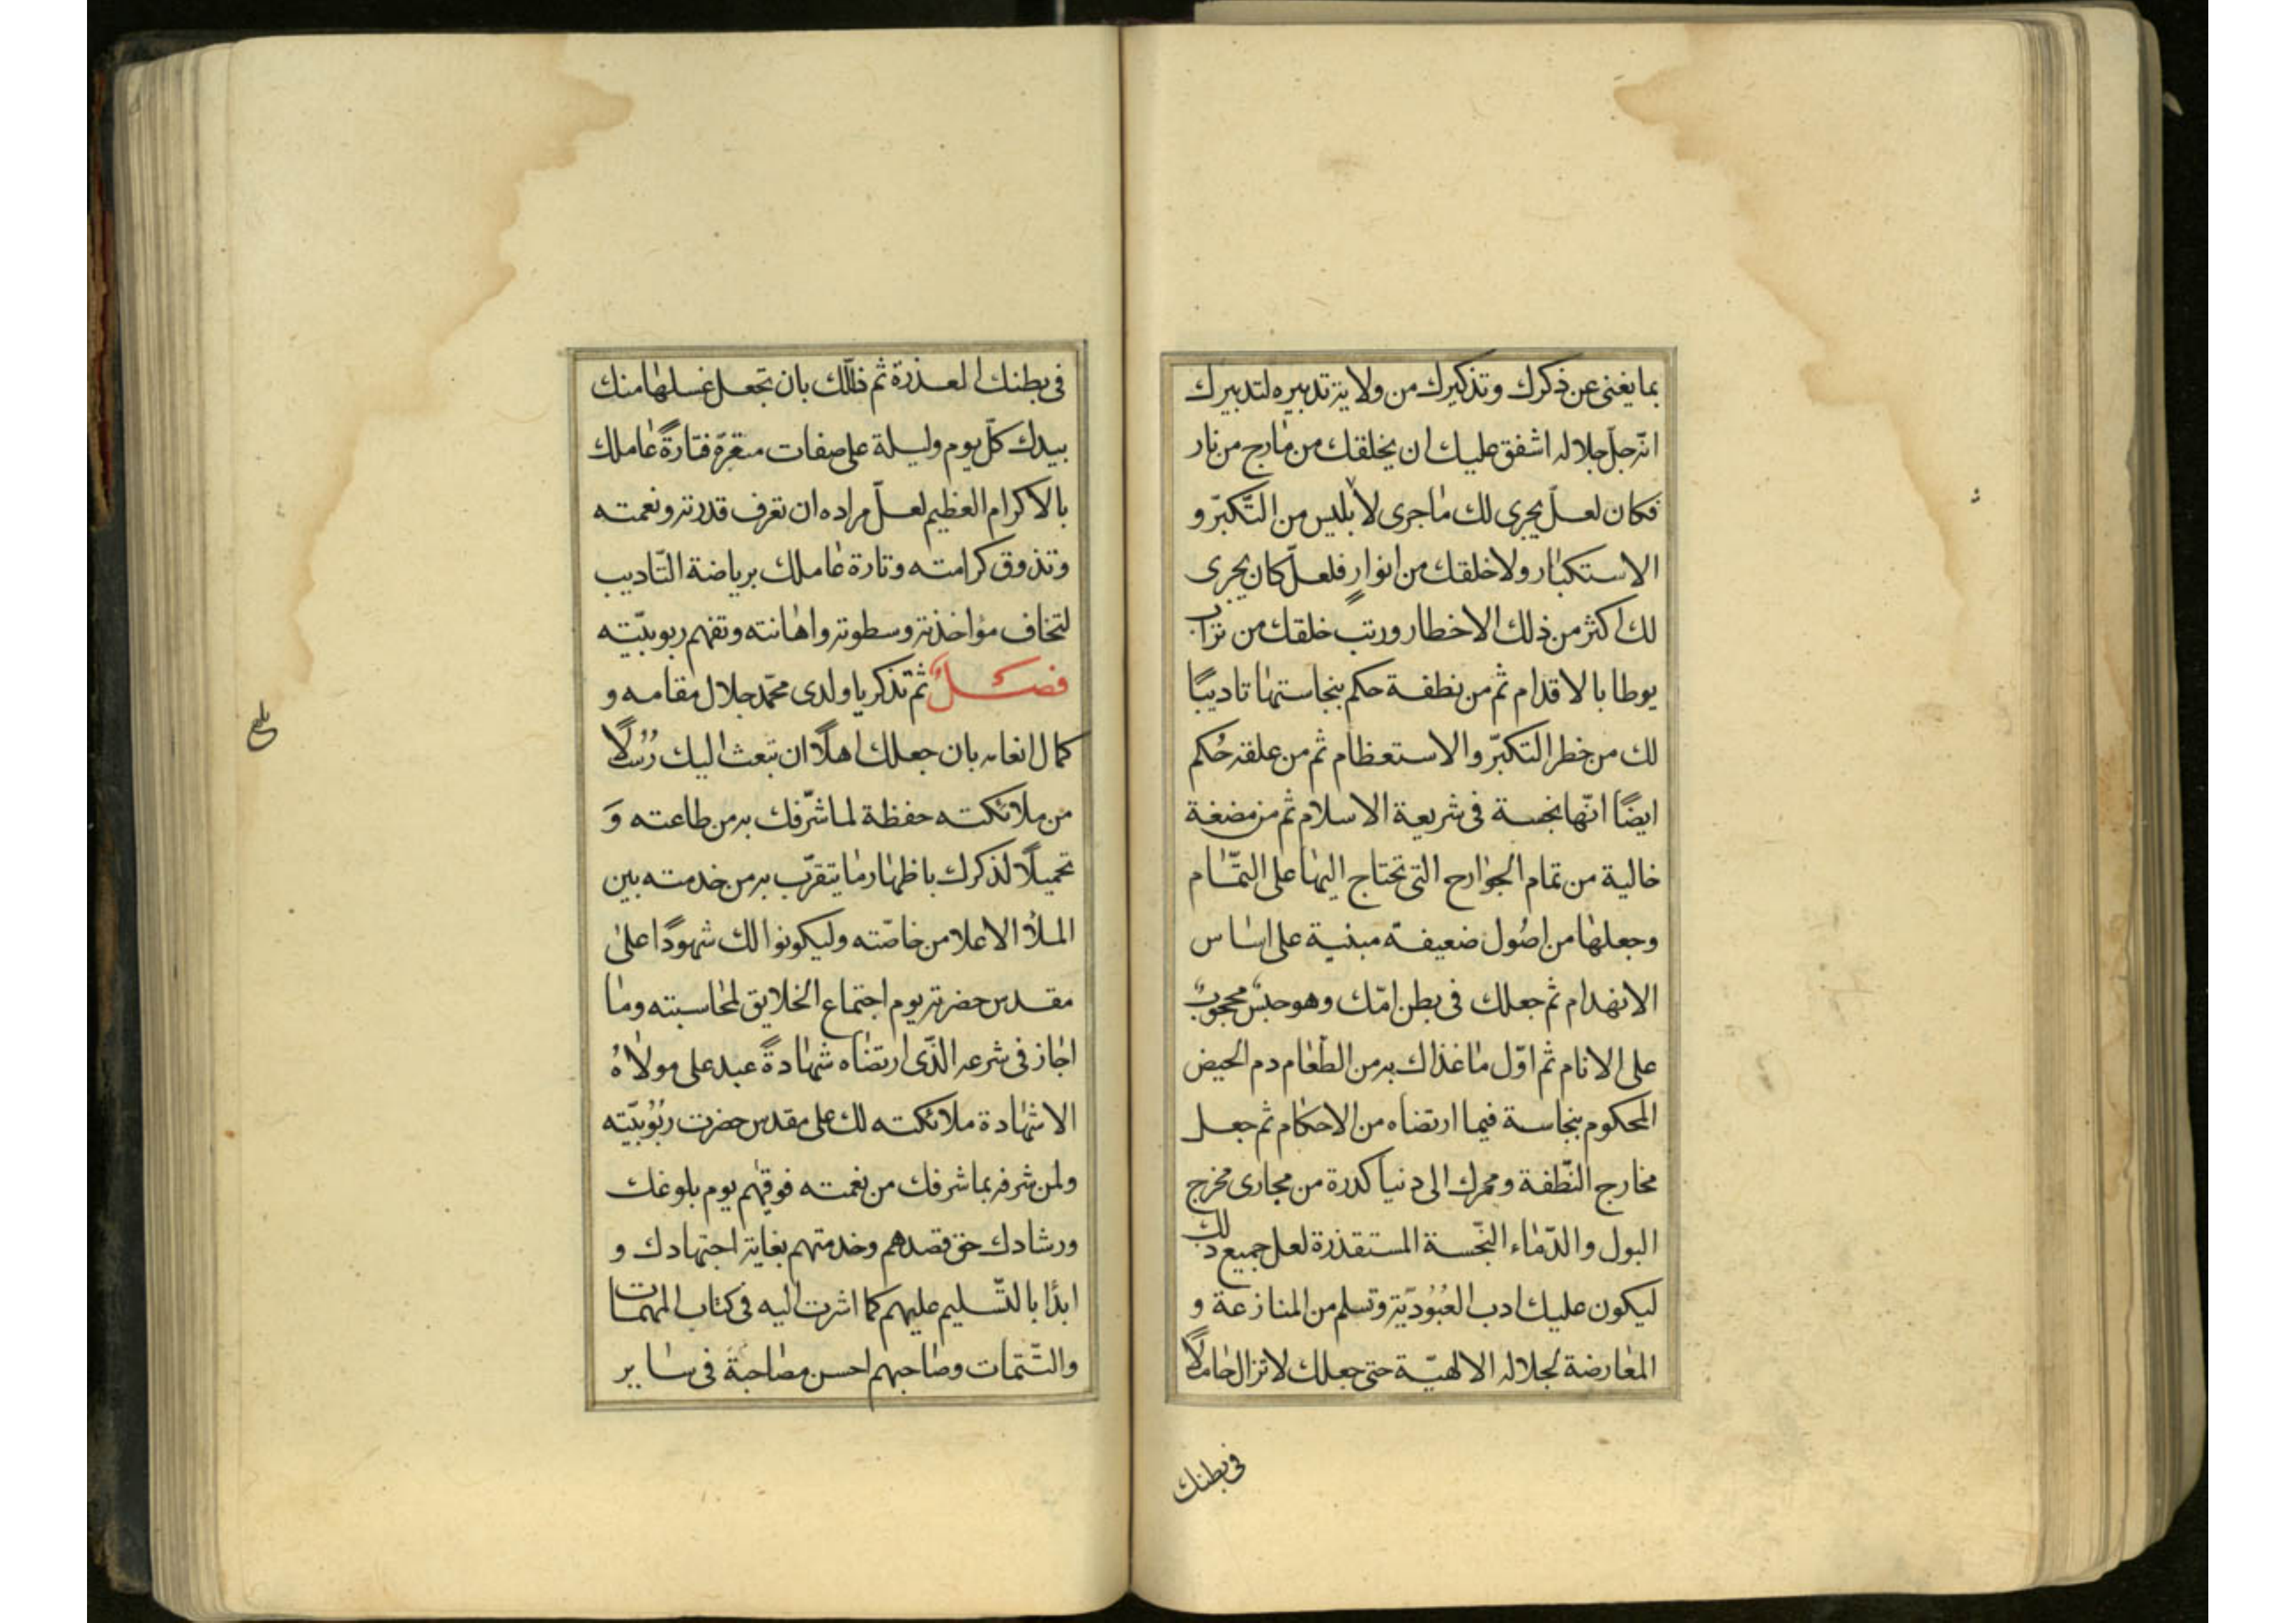 بما يغنى عن ذكرك وتذكيرك من ولاية تدبيره لتدبيرك
انّه جلّ جلاله اشفق عليك ان يخلقك من مارج من نار
فكان لعلّ يجرى لك ما جرى لابليس من التّكبّر و
الاستكبار ولا خلقك من انوارٍ فلعلّ كان يجرى
لك اكثر من ذلك الاخطار ورتب خلقك من تراب
يوطا بالاقدام ثم من نطفة حكم بنجاستها تاديبًا
لك من خطر التكبّر والاستعظام ثم من علقة حُكم
ايضًا انّها نجسة فى شريعة الاسلام ثم من مضغة
خالية من تمام الجوارح التى تحتاج اليها على التّمام
وجعلها من اصُول ضعيفة مبنية على اساس
الانهدام ثم جعلك فى بطن امّك وهو حبسٌ محجوبٌ
على الانام ثم اوّل ما غذاك به من الطّعام دم الحيض
المحكوم بنجاسة فيما ارتضاه من الاحكام ثم جعل
مخارج النّطفة وممرك الى دنيا كدرة من مجارى مخرج
البول والدّماء النّجسة المستقذرة لعل جميع ذلك
ليكون عليك ادب العُبُوديّة وتسلم من المنازعة و
المعارضة لجلاله الالهيّة حتى جعلك لا تزال حاملًا
فى بطنك
فى بطنك العذرة ثم ذلّلك بان تجعل غسلها منك
بيدك كلّ يوم وليلة على صفات متغيرة فتارةً عاملك
بالاكرام العظيم لعلّ مراده ان تعرف قدرته ونعمته
وتذوق كرامته وتارة عاملك برياضة التّاديب
لتخاف مؤاخذته وسطوته واهانته وتفهم ربوبيّته
فصلٌ ثم تذكر يا ولدى محمّد جلال مقامه و
كمال انعامه بان جعلك اهلًا ان تبعث اليك رُسُلًا
من ملائكته حفظة لما شرّفك به من طاعته وَ
تحميلًا لذكرك باظهار ما يتقرّب به من خدمته بين
الملأ الاعلا من خاصّته وليكونوا لك شهودًا على
مقدس حضرته يوم اجتماع الخلايق لمحاسبته وما
اجاز فى شرعه الذّى ارتضاه شهادةً عبد على مولاهُ
الا شهادة ملائكته لك على مقدس حضرت ربُوبيّته
ولمن شرفه بما شرفك من نعمته فوقهم يوم بلوغك
ورشادك حق قصدهم وخدمتهم بغاية اجتهادك و
ابدًا بالتّسليم عليهم كما اشرت اليه فى كتاب المهمات
والتّتمات وصاحبهم احسن مصاحبة فى ساير
بلغ